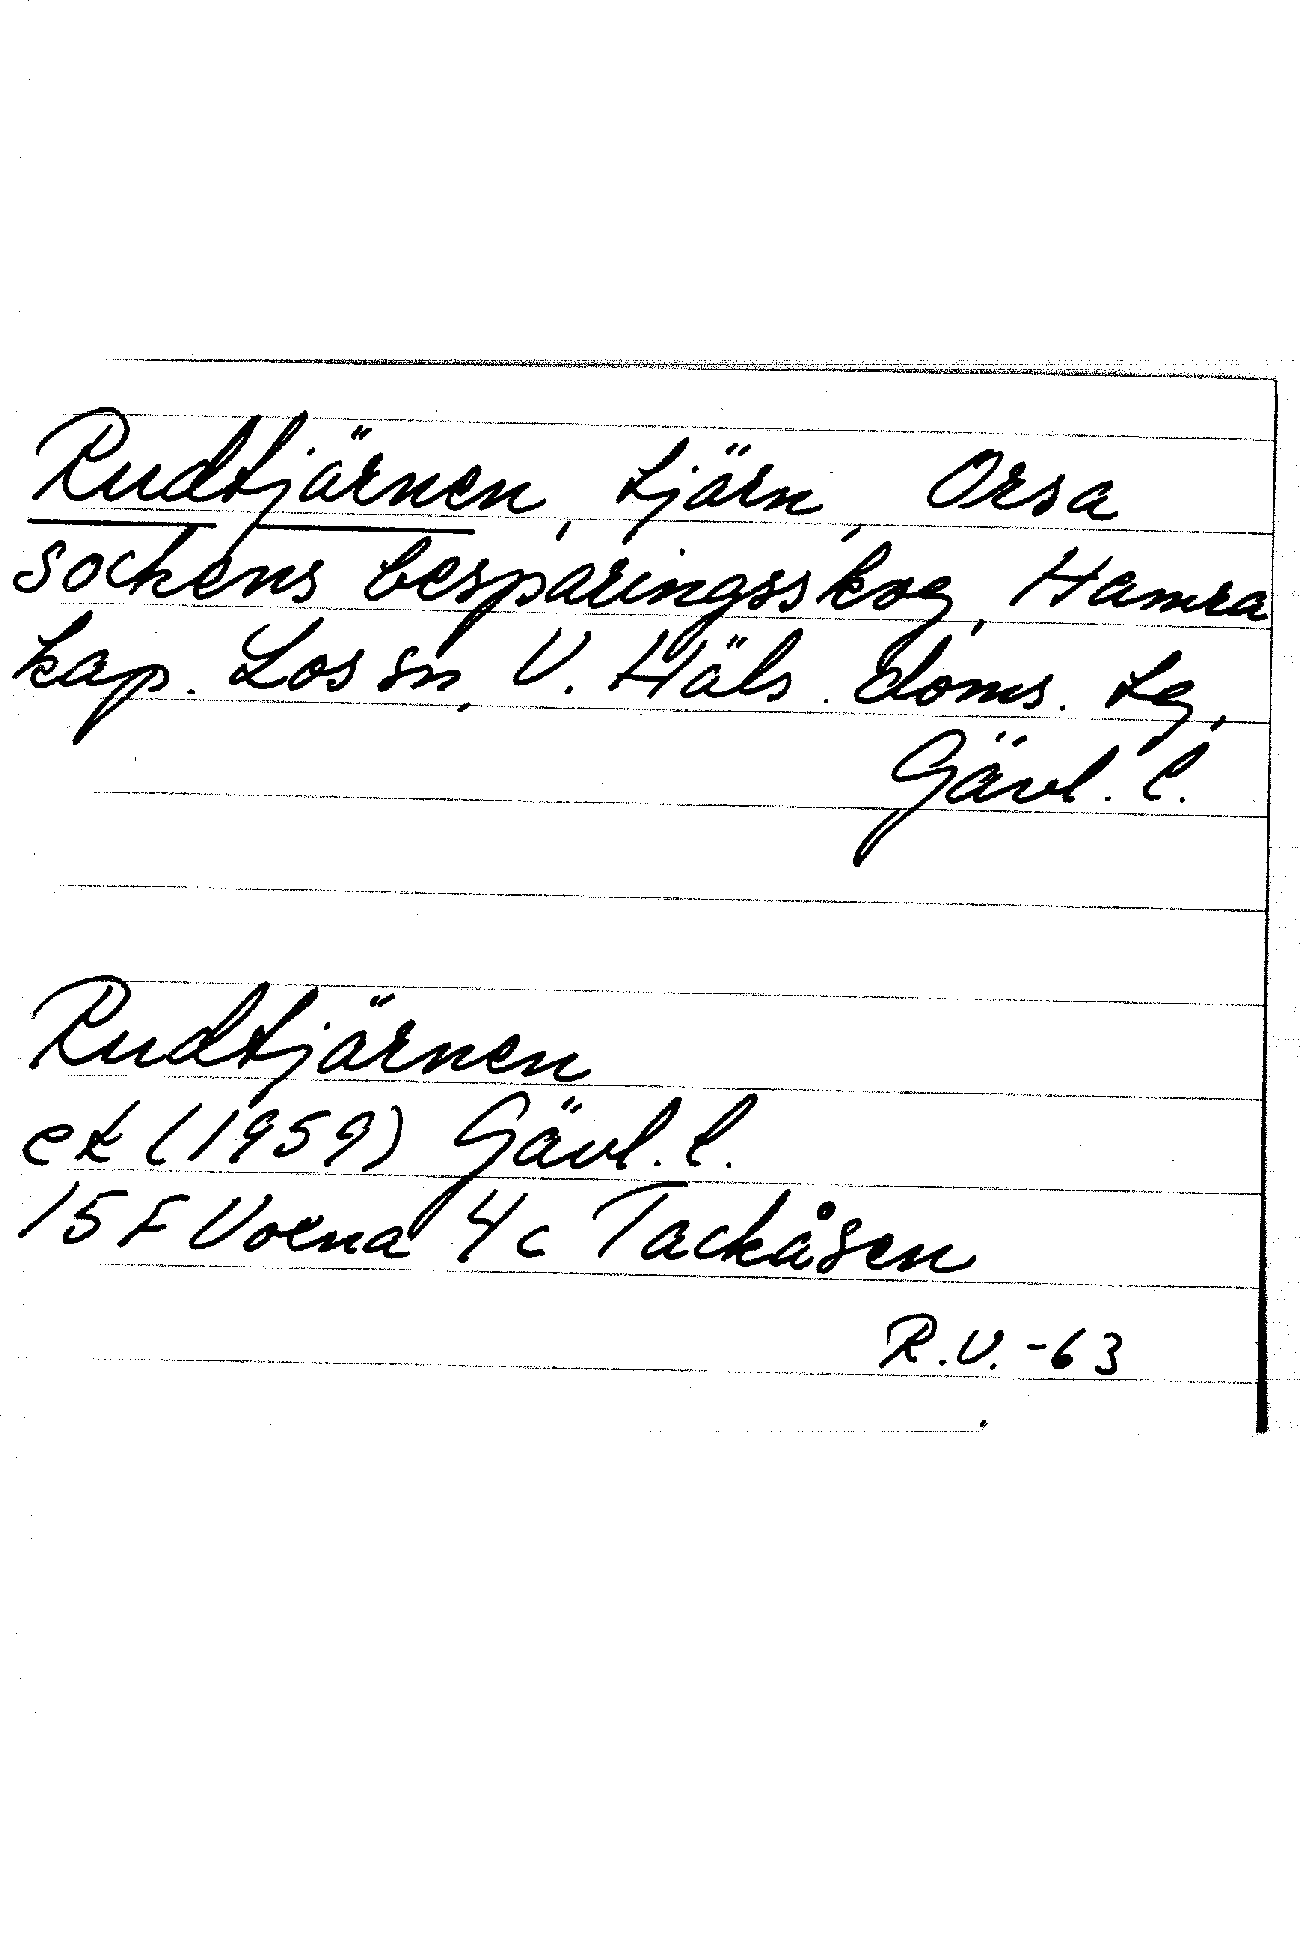 Rudtjärnen, tjärn, Orsa
sockens besparingsskog, Hamra
kap. Los sn, V. Häls. doms. tg,
Gävl. l.
Rudtjärnen
ek (1959) Gävl. l.
15 F Voxna 4c Tackåsen
R.V. -63